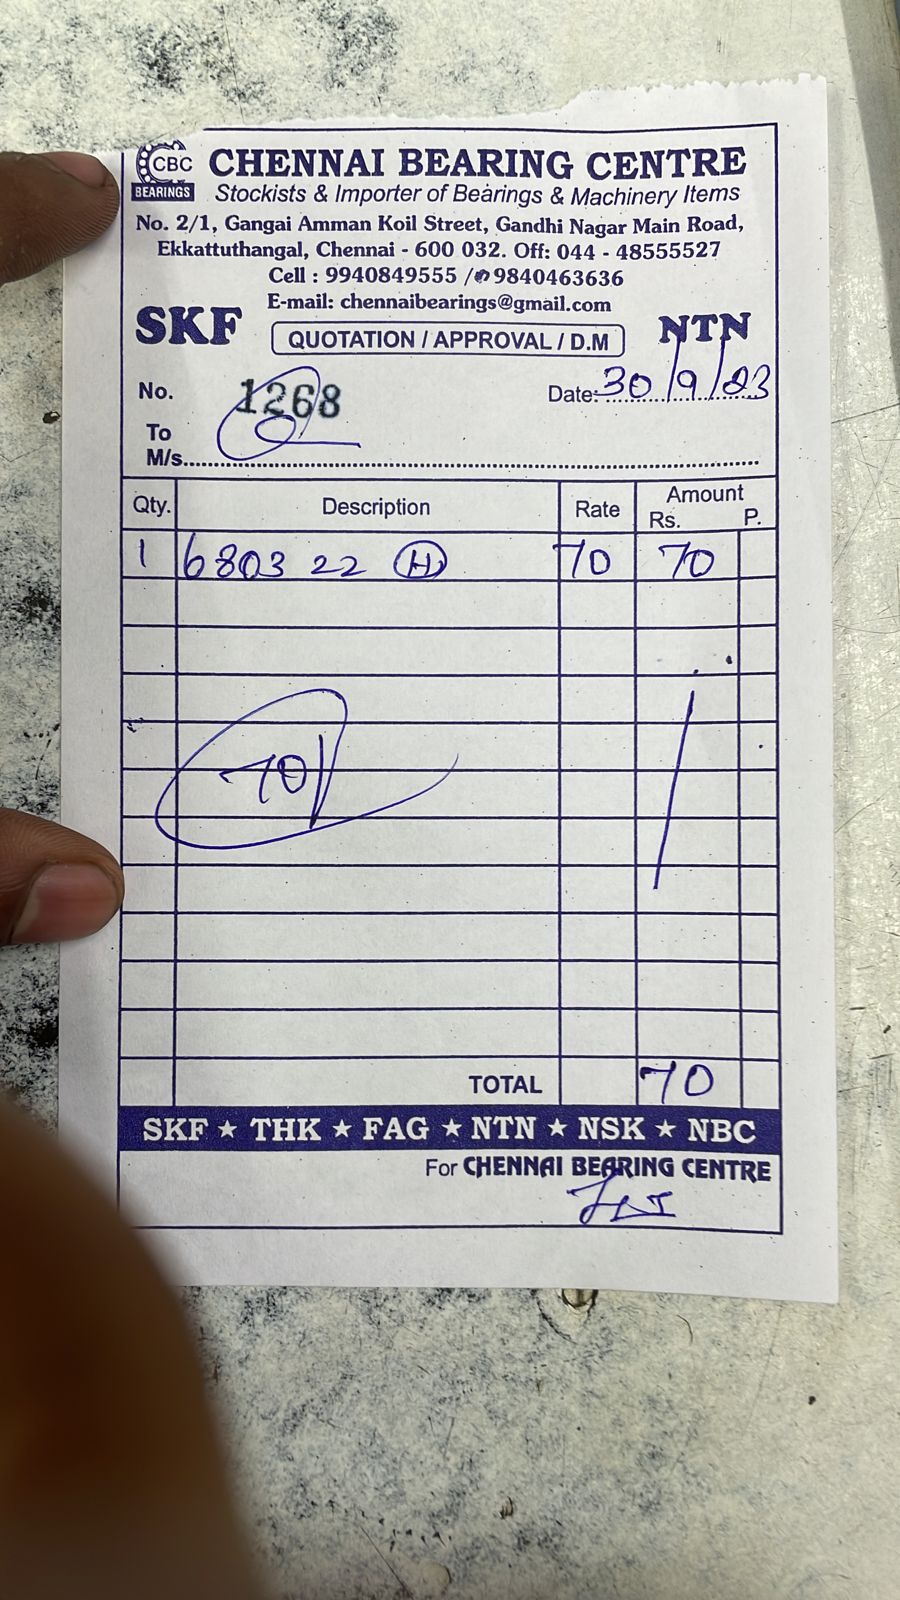 CBC
BEARINGS
CHENNAI BEARING CENTRE
Stockists & Importer of Bearings & Machinery Items
No. 2/1, Gangai Amman Koil Street, Gandhi Nagar Main Road,
Ekkattuthangal, Chennai - 600 032. Off: 044 - 48555527
Cell : 9940849555 / 9840463636
E-mail: chennaibearings@gmail.com
SKF QUOTATION / APPROVAL / D.M NTN
No. 1268 Date: 30/9/23
To
M/s.
Qty. Description Rate Amount
Rs. P.
1 6803 22 H 70 70
70/
TOTAL 70
SKF ★ THK ★ FAG ★ NTN ★ NSK ★ NBC
For CHENNAI BEARING CENTRE